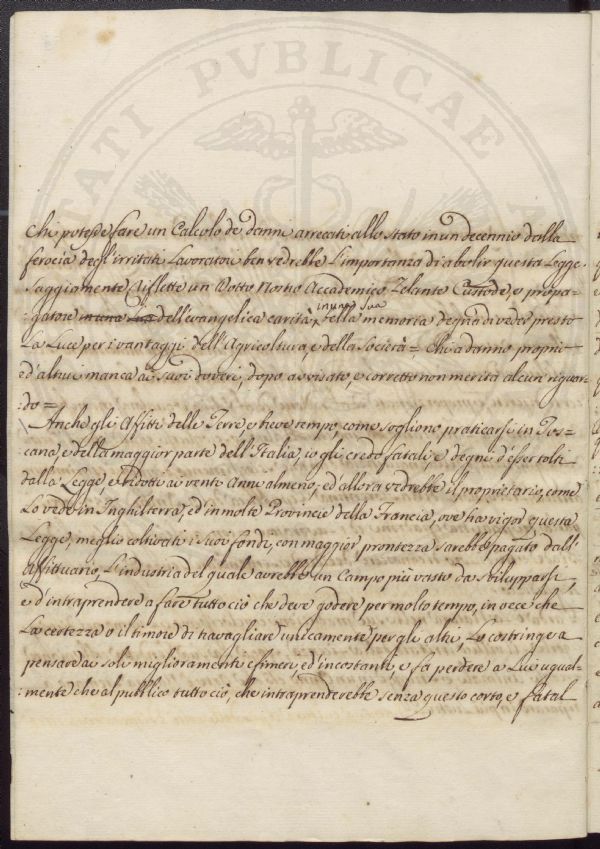 TATI PVBLICAE
Chi potesse fare un Calcolo de danni arrecati allo stato in un decennio dalla
ferocia degl'irritati Lavoratori ben vedrebbe L'importanza di abolir questa Legge.
Saggiamente riflette un Dotto Nostro Accademico Zelante Custode, e propa=
:gatore in una sua dell'evangelica carità, nella memoria degna di veder presto
La Luce per i vantaggi dell'Agricoltura, e della Società = Chi a danno proprio
e d'altrui manca ai suoi doveri, dopo avvisato, e corretto non merita alcun riguar=
:do=
Anche gli Affitti delle Terre a breve tempo, come sogliono praticarsi in Tos=
cana, e della maggior parte dell'Italia, io gli credo fatali, e degni d'esser tolti
dalla Legge, e ridotti ai vente Anni almeno, ed allora vedrebbe il proprietario, come
Lo vedo in Inghilterra, ed in molte Provincie della Francia, ove ha vigor questa
Legge, meglio coltivati i suoi fondi, con maggior prontezza sarebbe pagato dall'
Affittuario, L'industria del quale avrebbe un Campo più vasto da svilupparsi,
e d'intraprendere a fare tutto ciò che deve godere per molto tempo, in vece che
La certezza o il timore di travagliare unicamente per gli altri, Lo costringe a
pensare ai soli miglioramenti efimeri, ed incostanti, e fa perdere a Lui ugual=
:mente che al pubblico tutto ciò, che intraprenderebbe senza questo corto, e fatal